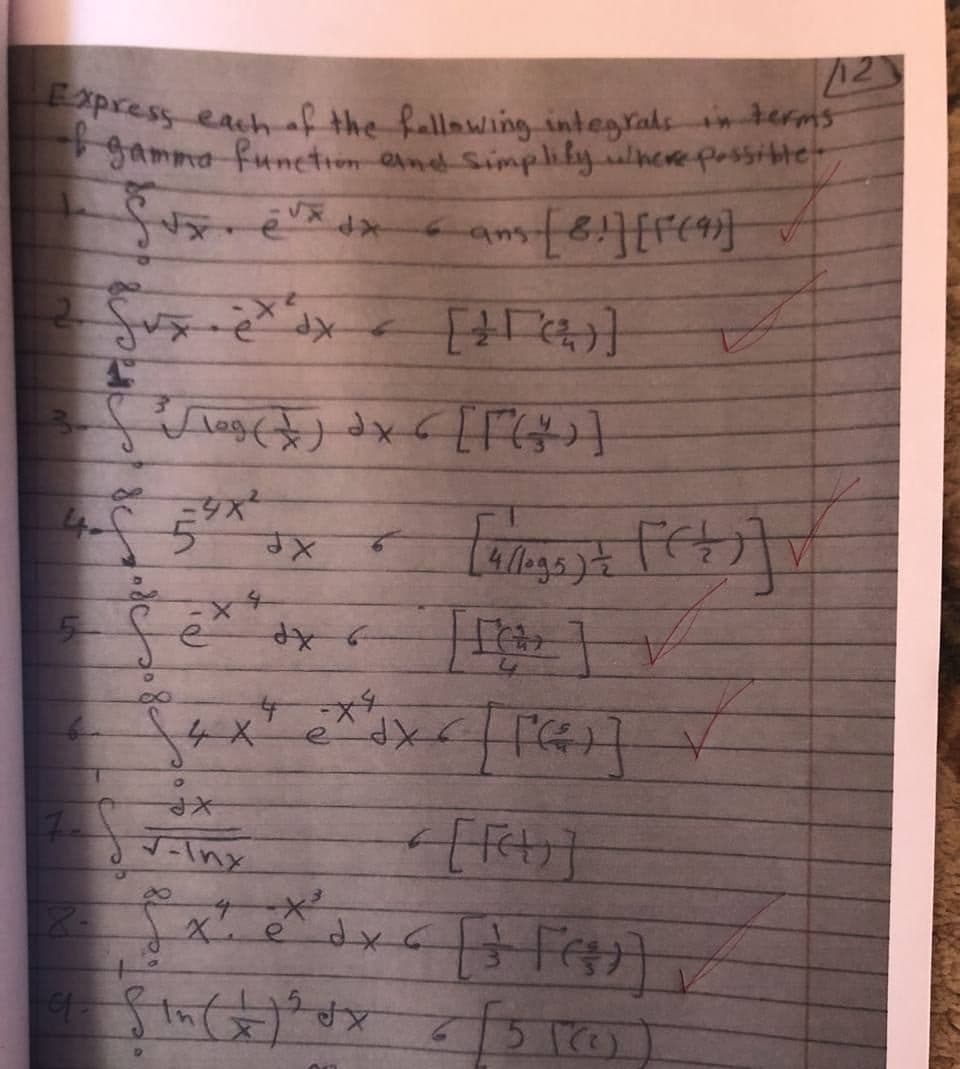 12
Express each of the following integrals in terms
of gamma function and simplify where possible.
1- ∫₀^∞ √x · e^-√x dx , ans [8!][Γ(9)]
2- ∫₀^∞ √x · e^-x² dx , [½ Γ(3/4)]
3- ∫₀^1 ³√log(1/x) dx , [Γ(4/3)]
4- ∫₀^∞ 5^-4x² dx , [1/(4(log5)^½) Γ(½)]
5- ∫₀^∞ e^-x⁴ dx , [Γ(¼)/4]
6- ∫₀^∞ 4x⁴ e^-x⁴ dx , [Γ(5/4)]
7- ∫₀^1 dx/√-lnx , [Γ(½)]
8- ∫₀^∞ x⁴ · e^-x³ dx , [⅓ Γ(5/3)]
9- ∫₀^1 ln(1/x)⁵ dx , [5 Γ(2)]